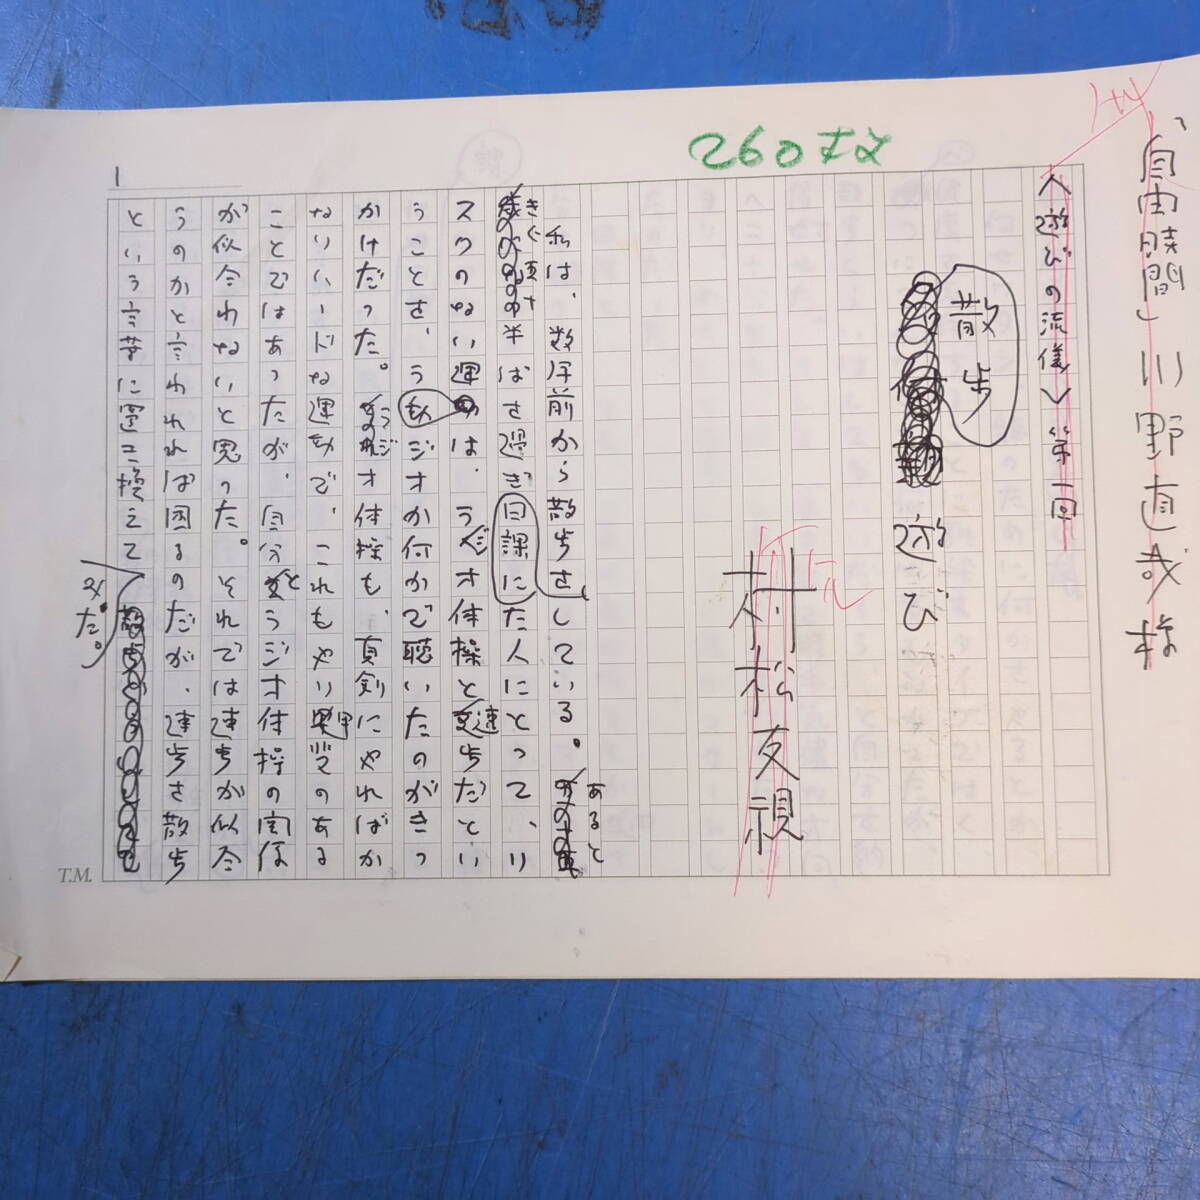 「自由時間」川野直哉様
260すえ
〈遊びの流儀〉第一回
散歩
遊び
村松友視
私は、数年前から散歩をしている。あると
きぐ頃 半ばを過ぎ日課にた人にとって、リ
スクのない運動は、ラジオ体操と速歩だとい
うことを、ラジオか何かで聴いたのがきっ
かけだった。ラジオ体操も、真剣にやればか
なりハードな運動で、これもやり甲斐のある
ことではあったが、自分とラジオ体操の関係
が似合わないと思った。それでは速歩が似合
うのかと言われれば困るのだが、速歩を散歩
という言葉に置き換えて
みた。
1
T.M.